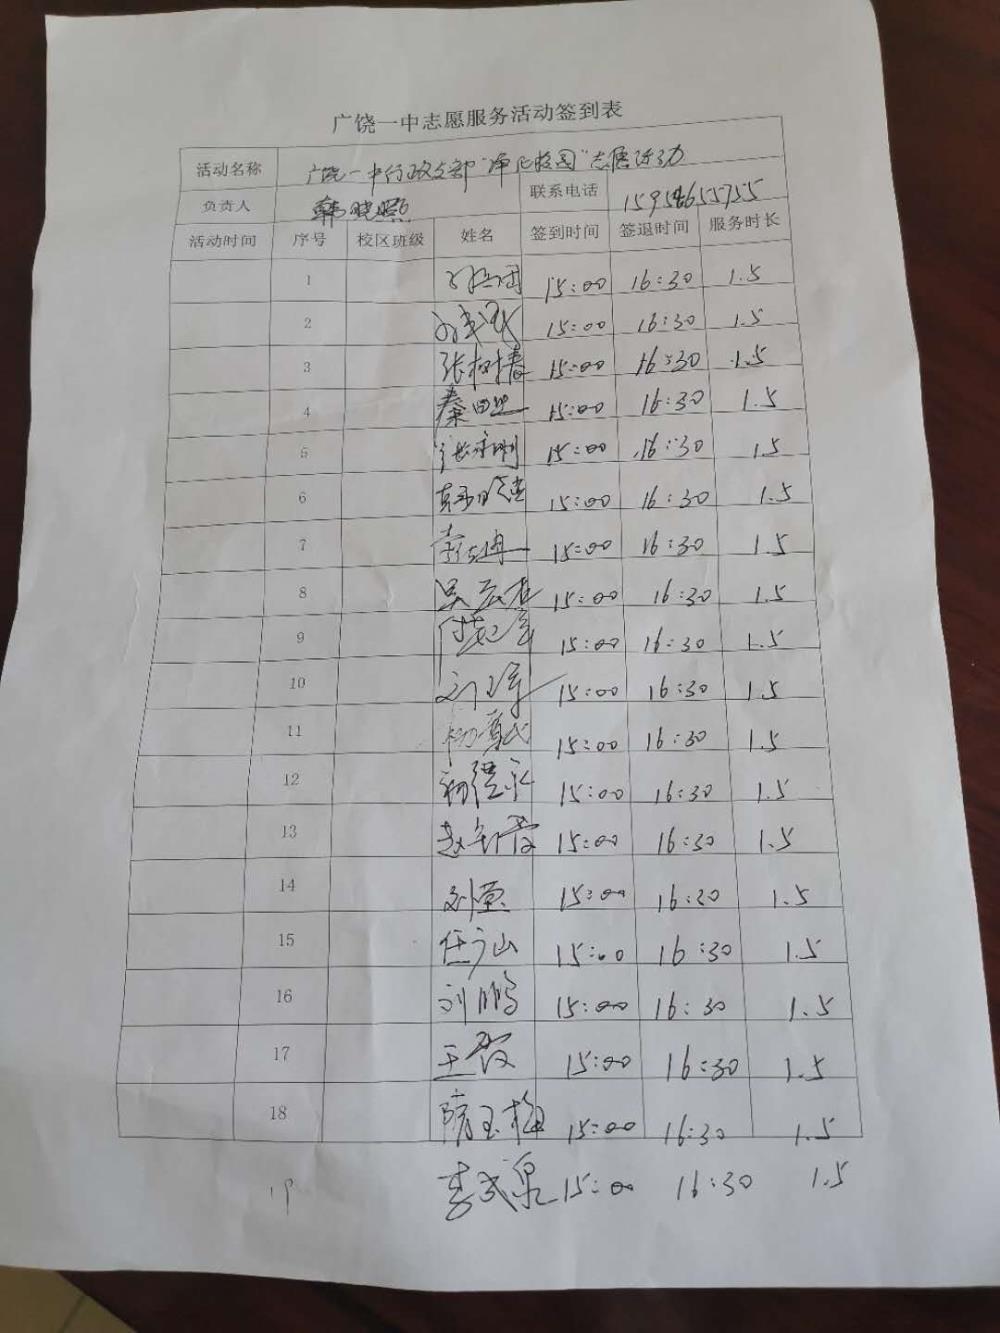 广饶一中志愿服务活动签到表
活动名称 广饶一中行政支部“净化校园”志愿活动
负责人 韩晓照 联系电话 15954655755
活动时间 序号 校区班级 姓名 签到时间 签退时间 服务时长
1 15:00 16:30 1.5
2 15:00 16:30 1.5
3 张树春 15:00 16:30 1.5
4 秦 15:00 16:30 1.5
5 15:00 16:30 1.5
6 15:00 16:30 1.5
7 15:00 16:30 1.5
8 15:00 16:30 1.5
9 15:00 16:30 1.5
10 刘军 15:00 16:30 1.5
11 15:00 16:30 1.5
12 15:00 16:30 1.5
13 赵 霞 15:00 16:30 1.5
14 15:00 16:30 1.5
15 任广山 15:00 16:30 1.5
16 刘鹏 15:00 16:30 1.5
17 王霞 15:00 16:30 1.5
18 隋玉梅 15:00 16:30 1.5
19 李武泉 15:00 16:30 1.5